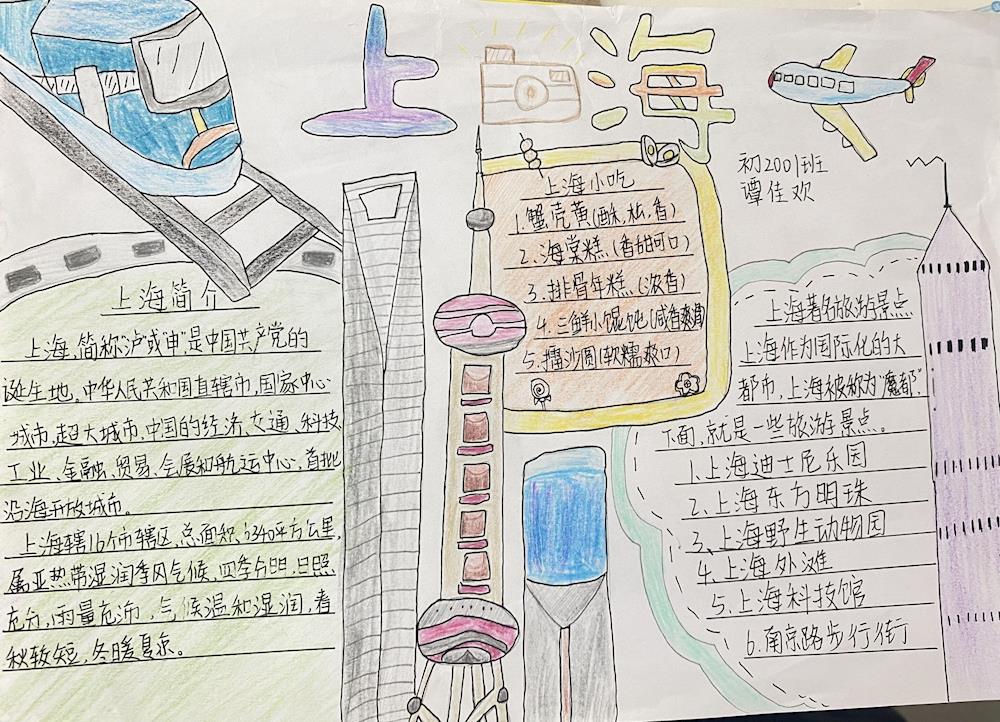 上海
初2001班
谭佳欢
上海简介
上海,简称沪或"申",是中国共产党的
诞生地。中华人民共和国直辖市,国家中心
城市,超大城市,中国的经济、交通、科技、
工业、金融、贸易、会展和航运中心,首批
沿海开放城市。
上海辖16个市辖区,总面积6340平方公里,
属亚热带湿润季风气候,四季分明,日照
充分,雨量充沛,气候温和湿润,春
秋较短,冬暖夏凉。
上海小吃
1.蟹壳黄(酥,松,香)
2.海棠糕(香甜可口)
3.排骨年糕(浓香)
4.三鲜小馄饨(咸香爽滑)
5.擂沙圆(软糯爽口)
上海著名旅游景点
上海作为国际化的大
都市,上海被称为"魔都".
下面,就是一些旅游景点。
1.上海迪士尼乐园
2.上海东方明珠
3、上海野生动物园
4.上海外滩
5.上海科技馆
6.南京路步行街